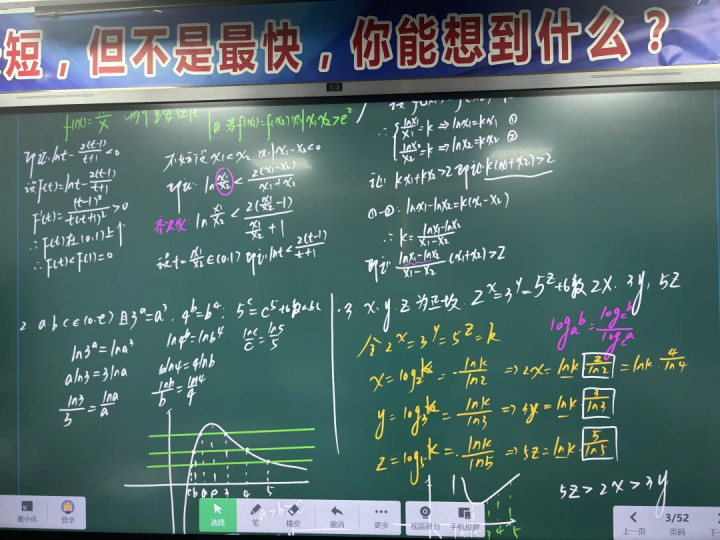 短，但不是最快，你能想到什么？
f(x)=
② 若f(x₁)=f(x₂), 则x₁x₂>e²
即证: lnt-2(t-1)/(t+1)<0
设F(t)=lnt-2(t-1)/(t+1)
F'(t)=(t-1)²/(t(t+1)²)>0
∴F(t)在(0,1)上↑
∴F(t)<F(1)=0
不妨设x₁<x₂, 则x₁-x₂<0
即证: ln x₁/x₂ < 2(x₁-x₂)/(x₁+x₂)
齐次化: ln x₁/x₂ < 2(x₁/x₂-1)/(x₁/x₂+1)
设t=x₁/x₂∈(0,1) 即证: lnt<2(t-1)/(t+1)
∴ lnx₁/x₁=k ⇒ lnx₁=kx₁ ①
lnx₂/x₂=k ⇒ lnx₂=kx₂ ②
证: kx₁+kx₂>2 即证k(x₁+x₂)>2
①-②: lnx₁-lnx₂=k(x₁-x₂)
∴ k=(lnx₁-lnx₂)/(x₁-x₂)
即证: (lnx₁-lnx₂)/(x₁-x₂)·(x₁+x₂)>2
2. a b c∈(0,e) 且3^a=a³, 4^b=b⁴, 5^c=c⁵, 比较abc
ln3^a=lna³
aln3=3lna
ln3/3=lna/a
ln4^b=lnb⁴
bln4=4lnb
lnb/b=ln4/4
lnc/c=ln5/5
c b a e 3 4 5
3. x, y, z 为正数, 2^x=3^y=5^z 比较 2x, 3y, 5z
令 2^x=3^y=5^z=k
log_a b=log_c b/log_c a
x=log₂k=lnk/ln2 ⇒ 2x=lnk·2/ln2=lnk·4/ln4
y=log₃k=lnk/ln3 ⇒ 3y=lnk·3/ln3
z=log₅k=lnk/ln5 ⇒ 5z=lnk·5/ln5
5z>2x>3y
3 4 5
最小化
登录
选择
笔
橡皮
撤消
更多
视频展台
手机投屏
3/52
上一页
页